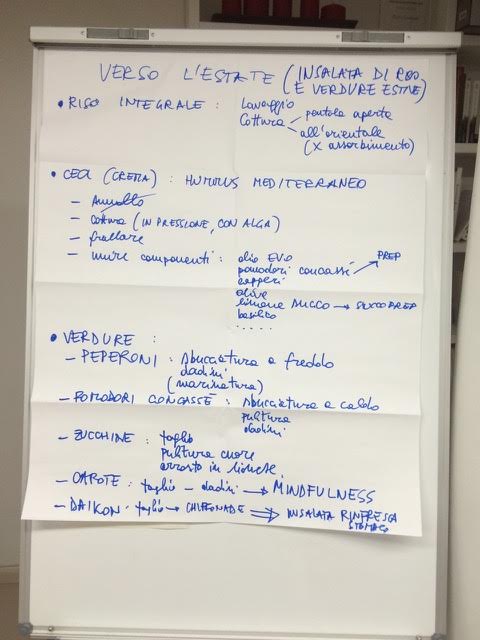 VERSO L'ESTATE (INSALATA DI RISO
E VERDURE ESTIVE)
• RISO INTEGRALE : Lavaggio
Cottura pentola aperta
all'orientale
(x assorbimento)
• CECI (CREMA) : HUMMUS MEDITERRANEO
- Ammollo
- cottura (IN PRESSIONE, CON ALGA)
- frullare
- unire componenti : olio EVO
pomodori concassé → PREP
capperi
olive
limone SUCCO → SUCCO PREP
basilico
.....
• VERDURE :
- PEPERONI : sbucciatura a freddo
dadini
(marinatura)
- POMODORI CONCASSÈ : sbucciatura a caldo
pulitura
dadini
- ZUCCHINE : taglio
pulitura cuore
arrosto in
- CAROTE : taglio - dadini → MINDFULNESS
- DAIKON : taglio → CHIFFONADE ⇒ INSALATA RINFRESCA
STOMACO